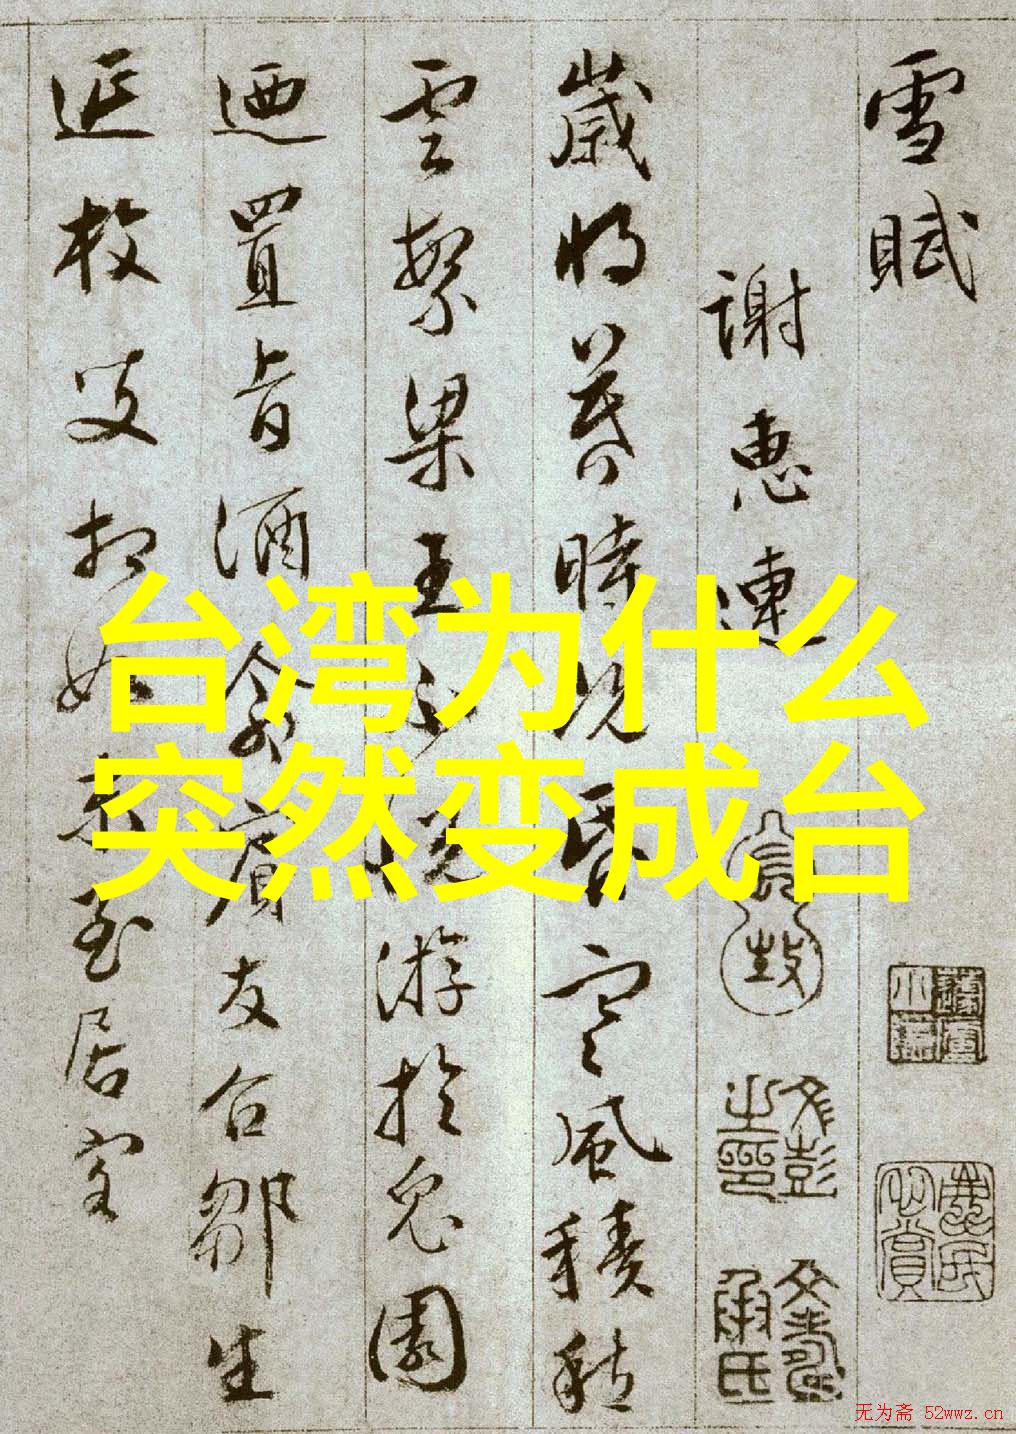 雪賦
謝惠連
歲將暮時既昏寒風積愁
雲繁梁王不悅游於兔園
迺置旨酒命賓友召鄒生
延枚叟相如末至居客
台湾为什么
突然变成台
文彭之印
文壽承氏
无为斋 52wwz.cn